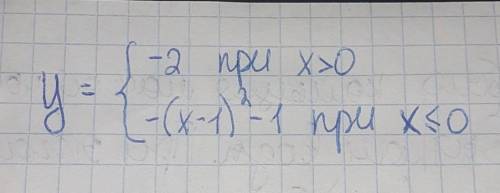 y = { -2 при x>0
-(x-1)² -1 при x≤0